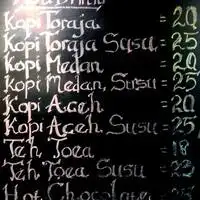 Kopi Toraja = 20
Kopi Toraja Susu = 25
Kopi Medan = 20
Kopi Medan, Susu = 25
Kopi Aceh = 20
Kopi Aceh Susu = 25
Teh Toea = 18
Teh Toea Susu = 23
Hot Chocolate